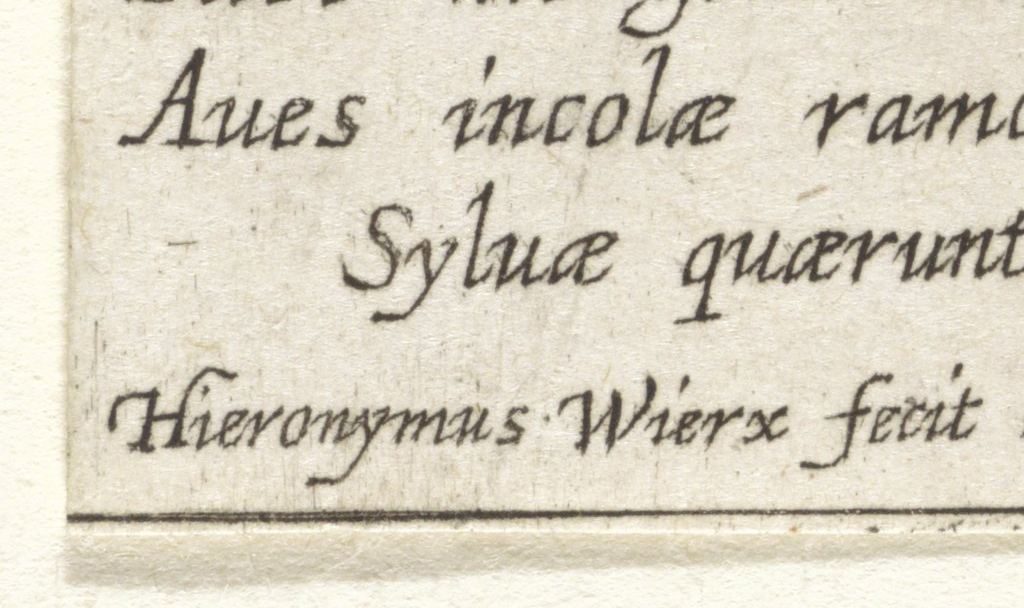 Aues incolæ
Syluæ quærunt
Hieronymus Wierx fecit